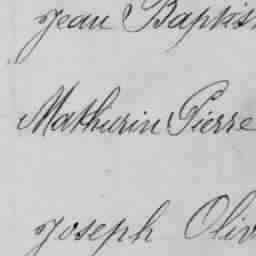 Jean Baptis
Mathurin Pierre
Joseph Oliv